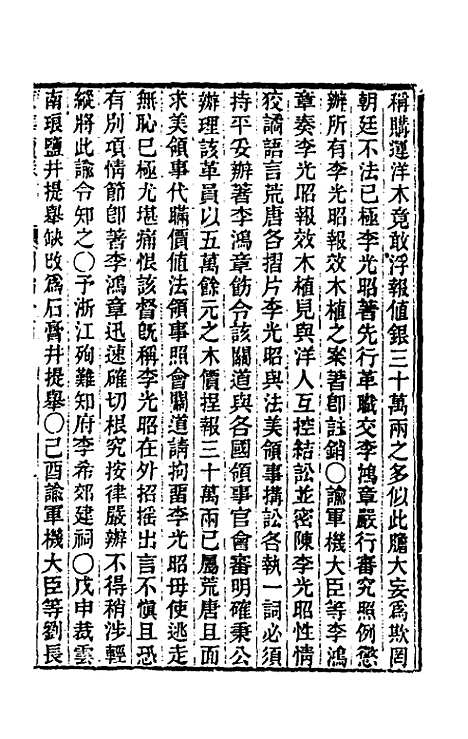 稱購運洋木竟敢浮報値銀三十萬兩之多似此膽大妄爲欺罔
朝廷不法已極李光昭著先行革職交李鴻章嚴行審究照例懲
辦所有李光昭報效木植之案著卽註銷〇諭軍機大臣等李鴻
章奏李光昭報效木植見與洋人互控結訟並密陳李光昭性情
狡譎語言荒唐各摺片李光昭與法美領事搆訟各執一詞必須
持平妥辦著李鴻章飭令該關道與各國領事官會審明確秉公
辦理該革員以五萬餘元之木價揑報三十萬兩已屬荒唐且面
求美領事代瞞價値法領事照會關道請拘畱李光昭毋使逃走
無恥已極尤堪痛恨該督旣稱李光昭在外招摇出言不愼且恐
有別項情節卽著李鴻章迅速確切根究按律嚴辦不得稍涉輕
縱將此諭令知之〇予浙江殉難知府李希郊建祠〇戊申裁雲
南琅鹽井提舉缺改爲石膏井提舉〇己酉諭軍機大臣等劉長